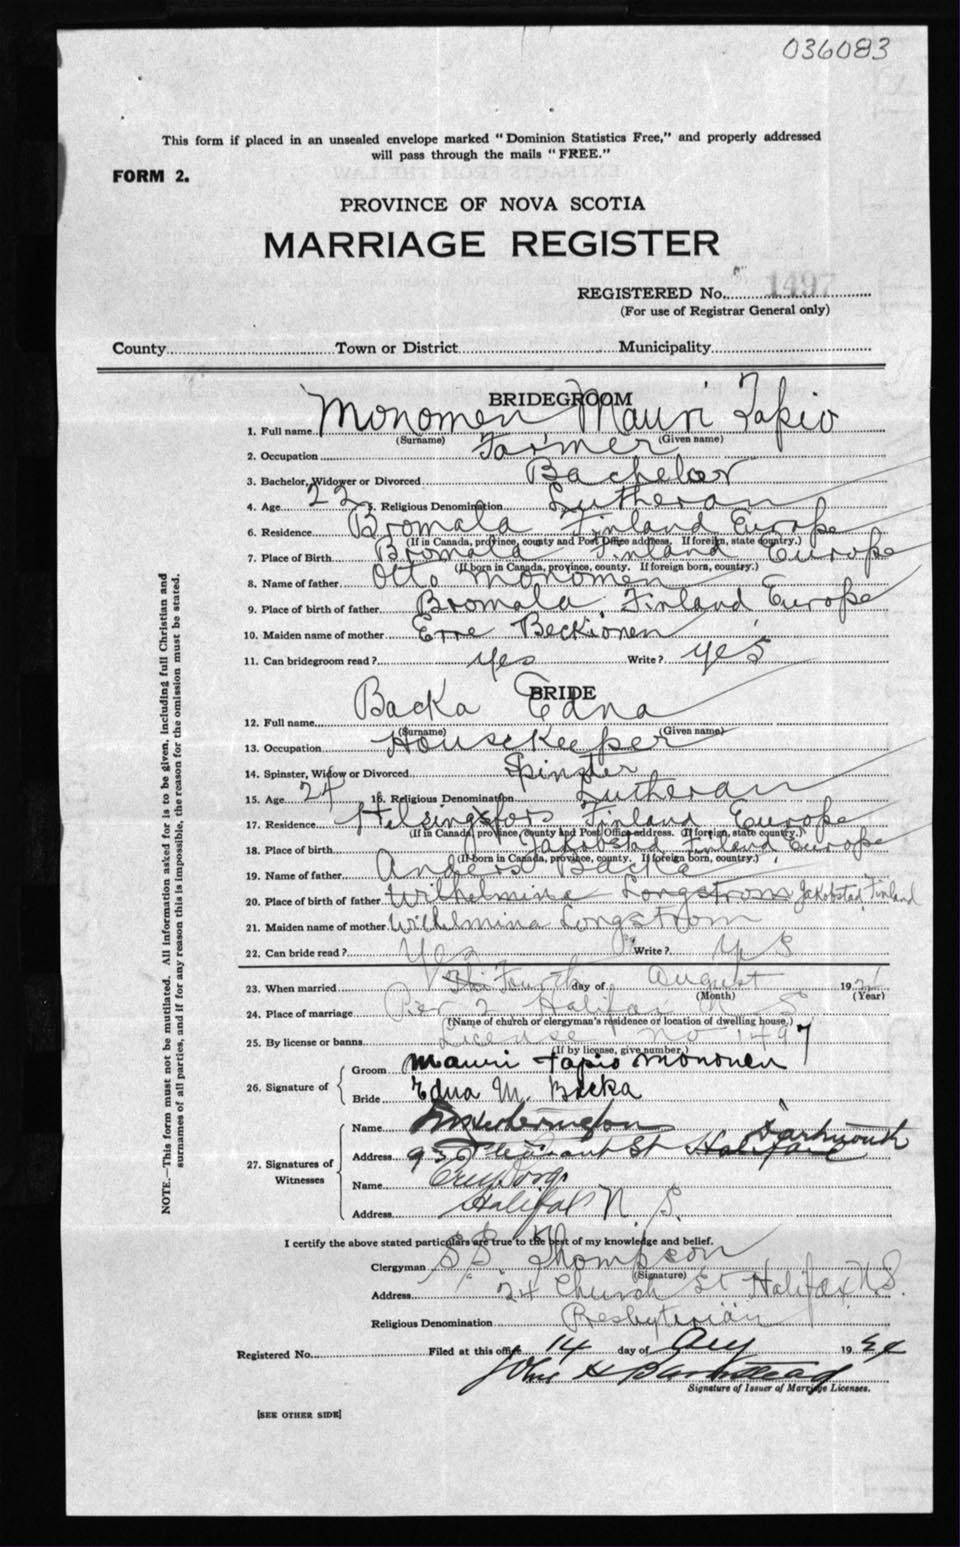 036083
This form if placed in an unsealed envelope marked "Dominion Statistics Free," and properly addressed
will pass through the mails "FREE."
FORM 2.
PROVINCE OF NOVA SCOTIA
MARRIAGE REGISTER
REGISTERED No. 1497
(For use of Registrar General only)
County Town or District Municipality
BRIDEGROOM
1. Full name Monomen Mauri Tapio
(Surname) (Given name)
2. Occupation Farmer
3. Bachelor, Widower or Divorced Bachelor
4. Age 22 5. Religious Denomination Lutheran
6. Residence Bromala Finland Europe
(If in Canada, province, county and Post Office address. If foreign, state country.)
7. Place of Birth Bromala Finland Europe
(If born in Canada, province, county. If foreign born, country.)
8. Name of father Otto Monomen
9. Place of birth of father Bromala, Finland Europe
10. Maiden name of mother Erre Beckionen
11. Can bridegroom read? yes Write? yes
BRIDE
12. Full name Backa Edna
(Surname) (Given name)
13. Occupation Housekeeper
14. Spinster, Widow or Divorced Spinster
15. Age 24 16. Religious Denomination Lutheran
17. Residence Helsingsfors Finland Europe
(If in Canada, province, county and Post Office address. If foreign, state country.)
18. Place of birth Jakobstad Finland Europe
(If born in Canada, province, county. If foreign born, country.)
19. Name of father Anders Backa
20. Place of birth of father Wilhelmina Longstrom Jakobstad Finland
21. Maiden name of mother Wilhelmina Longstrom
22. Can bride read? Yes Write? yes
23. When married Fourth day of August 192
(Month) (Year)
24. Place of marriage Pier 2 Halifax N S
(Name of church or clergyman's residence or location of dwelling house.)
25. By license or banns License No 1497
(If by license, give number.)
26. Signature of
Groom Mauri Tapio Mononen
Bride Edna M. Backa
27. Signatures of Witnesses
Name
Address Pleasant St Halifax Dartmouth
Name
Address Halifax N. S.
I certify the above stated particulars are true to the best of my knowledge and belief.
Clergyman Thompson
(Signature)
Address 24 Church St Halifax N.S.
Religious Denomination Presbyterian
Registered No. Filed at this office 14 day of Aug 192
John H Barnstead
Signature of Issuer of Marriage Licenses.
[SEE OTHER SIDE]
NOTE.—This form must not be mutilated. All information asked for is to be given, including full Christian and
surnames of all parties, and if for any reason this is impossible, the reason for the omission must be stated.